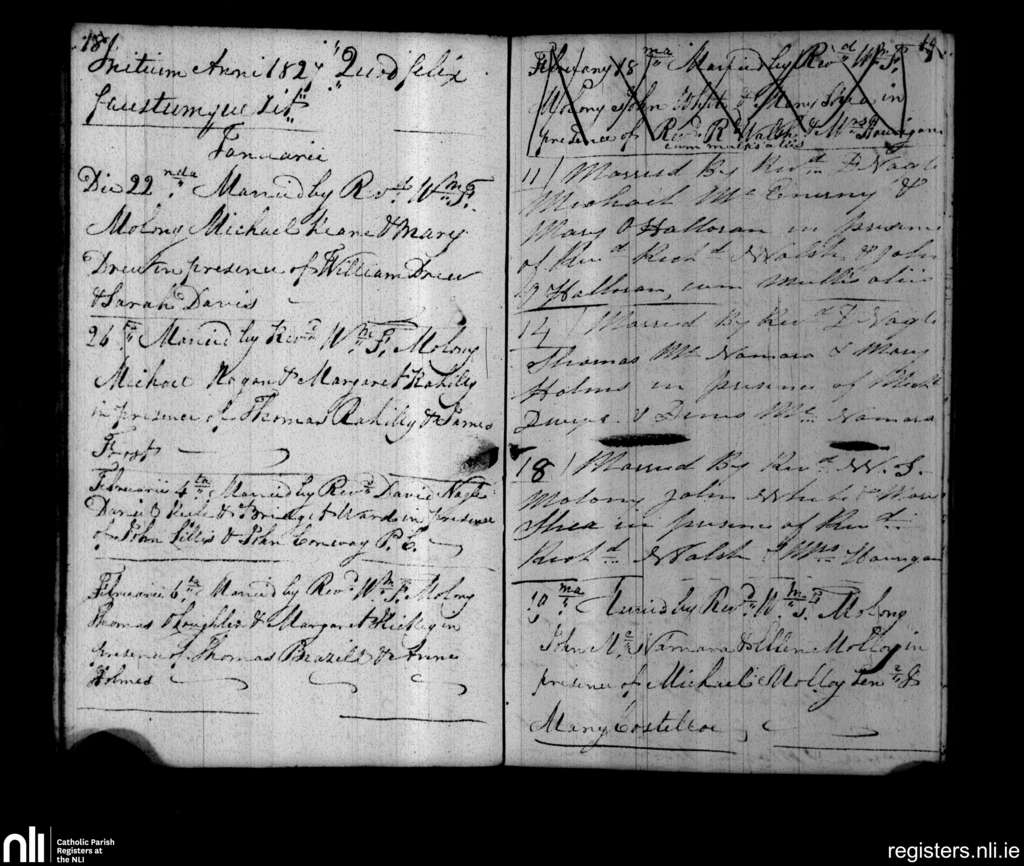 18
Initium Anni 1827 "Quod felix
faustumque sit"
Januarii
Die 22nda Married by Revd. Wm. P.
Molony Michael Keane & Mary
Drew in presence of William Drew
& Sarah Davis
26 Married by Revd Wm P. Molony
Michael Hogan & Margaret Rahilly
in presence of Thomas Rahilly & James
Frost
Februarii 4ta Married by Revd David Nagle
& Bridget Ward in presence
of John Lillis & John Conway P. C.
Februarii 6ta Married by Revd Wm P. Molony
Thomas Loughlin & Margaret Hickey in
presence of Thomas & Anne
Holmes
19
February 18 ma Married by Revd Wm P.
Molony John White & Mary Shea in
presence of Revd Rd Walsh & Mrs Hourigan
cum multis aliis
11 / Married By Revd D Nagle
Michael Mc Enerny &
Mary O Halloran in presence
of Revd Richd Walsh & John
O Halloran, cum multis aliis
14 / Married By Revd D Nagle
Thomas Mc Namara & Mary
Holms in presence of
& Denis Mc Namara
18 / Married By Revd W. P.
Molony John White & Mary
Shea in presence of Revd
Richd Walsh & Mrs Hourigan
19 ma Married by Revd Wm P. Molony
John Mc Namara & Ellen Molloy in
presence of Michael Molloy Senr &
Mary Costelloe
nli
Catholic Parish
Registers at
the NLI
registers.nli.ie